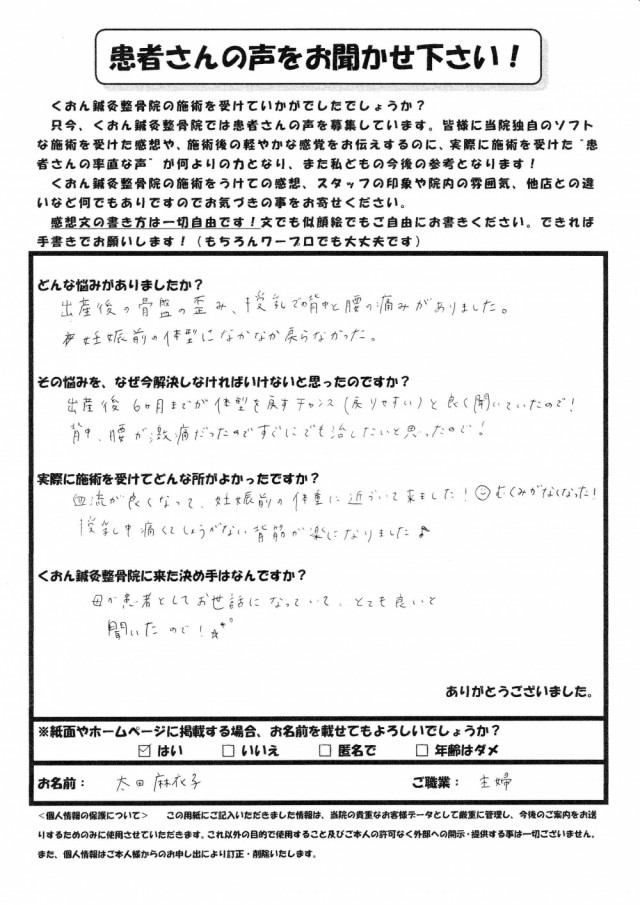 患者さんの声をお聞かせ下さい！
くおん鍼灸整骨院の施術を受けていかがでしたでしょうか？
只今、くおん鍼灸整骨院では患者さんの声を募集しています。皆様に当院独自のソフト
な施術を受けた感想や、施術後の軽やかな感覚をお伝えするのに、実際に施術を受けた“患
者さんの率直な声”が何よりの力となり、また私どもの今後の参考となります！
くおん鍼灸整骨院の施術をうけての感想、スタッフの印象や院内の雰囲気、他店との違
いなど何でもありですのでお気づきの事をお寄せください。
感想文の書き方は一切自由です！文でも似顔絵でもご自由にお書きください。できれば
手書きでお願いします！（もちろんワープロでも大丈夫です）
どんな悩みがありましたか？
出産後の骨盤の歪み、授乳での背中と腰の痛みがありました。
妊娠前の体型になかなか戻らなかった。
その悩みを、なぜ今解決しなければいけないと思ったのですか？
出産後6ヶ月までが体型を戻すチャンス(戻りやすい)と良く聞いていたので！
背中、腰が激痛だったのですぐにでも治したいと思ったので！
実際に施術を受けてどんな所がよかったですか？
血流が良くなって、妊娠前の体重に近づいて来ました！☺むくみがなくなった！
授乳中痛くてしょうがない背筋が楽になりました♪
くおん鍼灸整骨院に来た決め手はなんですか？
母が患者としてお世話になっていて、とても良いと
聞いたので！
ありがとうございました。
※紙面やホームページに掲載する場合、お名前を載せてもよろしいでしょうか？
☑ はい □ いいえ □ 匿名で □ 年齢はダメ
お名前： 太田 麻衣子 ご職業： 主婦
＜個人情報の保護について＞ この用紙にご記入いただきました情報は、当院の貴重なお客様データとして厳重に管理し、今後のご案内をお送
りするためのみに使用させていただきます。これ以外の目的で使用すること及びご本人の許可なく外部への開示・提供する事は一切ございません。
また、個人情報はご本人様からのお申し出により訂正・削除いたします。